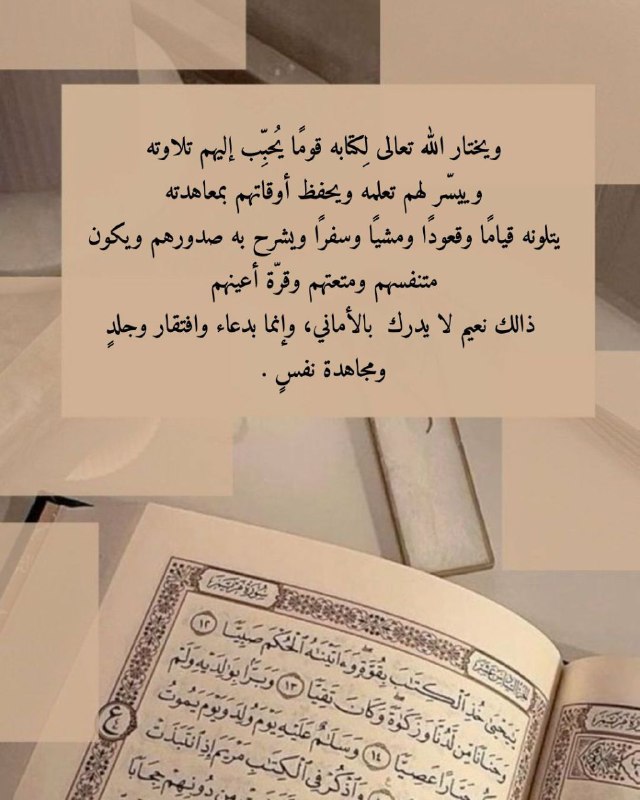 ويختار الله تعالى لِكتابه قومًا يُحبِّب إليهم تلاوته
وييسّر لهم تعلمه ويحفظ أوقاتهم بمعاهدته
يتلونه قيامًا وقعودًا ومشيًا وسفرًا ويشرح به صدورهم ويكون
متنفسهم ومتعتهم وقرّة أعينهم
ذالك نعيم لا يدرك بالأماني، وإنما بدعاء وافتقار وجلدٍ
ومجاهدة نفسٍ .
سُورَةُ مَرْيَم
يَٰيَحْيَىٰ خُذِ ٱلْكِتَٰبَ بِقُوَّةٍ وَءَاتَيْنَٰهُ ٱلْحُكْمَ صَبِيًّا ١٢
وَحَنَانًا مِّن لَّدُنَّا وَزَكَوٰةً وَكَانَ تَقِيًّا ١٣ وَبَرًّۢا بِوَٰلِدَيْهِ وَلَمْ
جَبَّارًا عَصِيًّا ١٤ وَسَلَٰمٌ عَلَيْهِ يَوْمَ وُلِدَ وَيَوْمَ يَمُوتُ
وَٱذْكُرْ فِى ٱلْكِتَٰبِ مَرْيَمَ إِذِ ٱنتَبَذَتْ
مِن دُونِهِمْ حِجَابًا